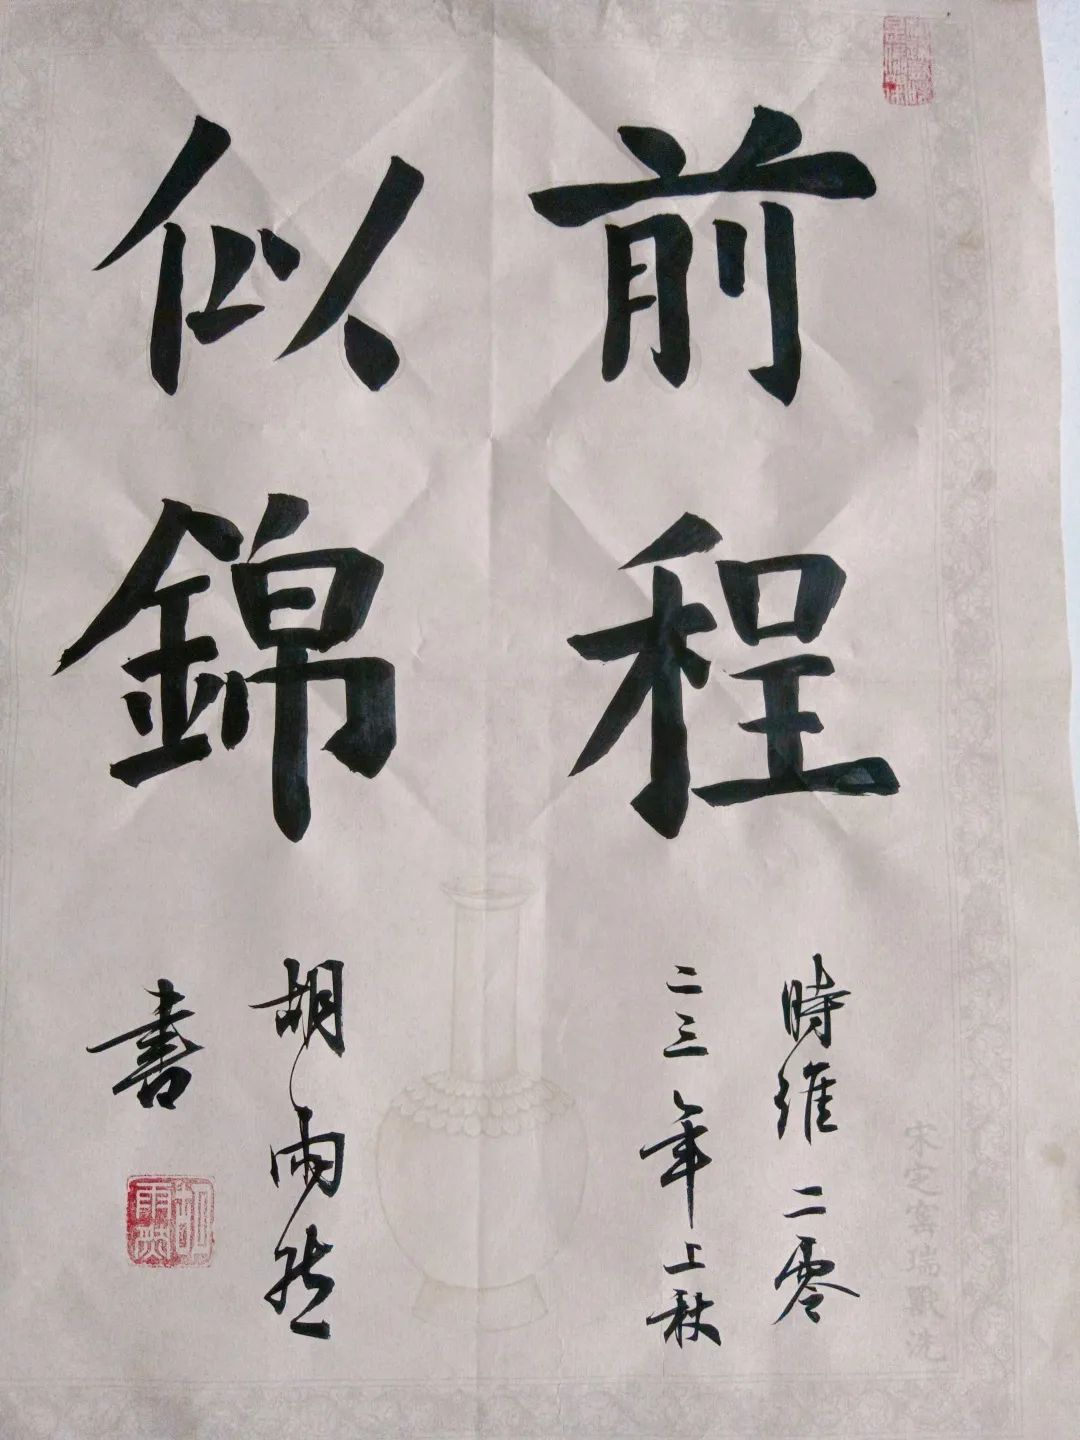 前程
似錦
時維二零
二三年上秋
胡雨
書
宋定窰瑞獸洗
胡
雨